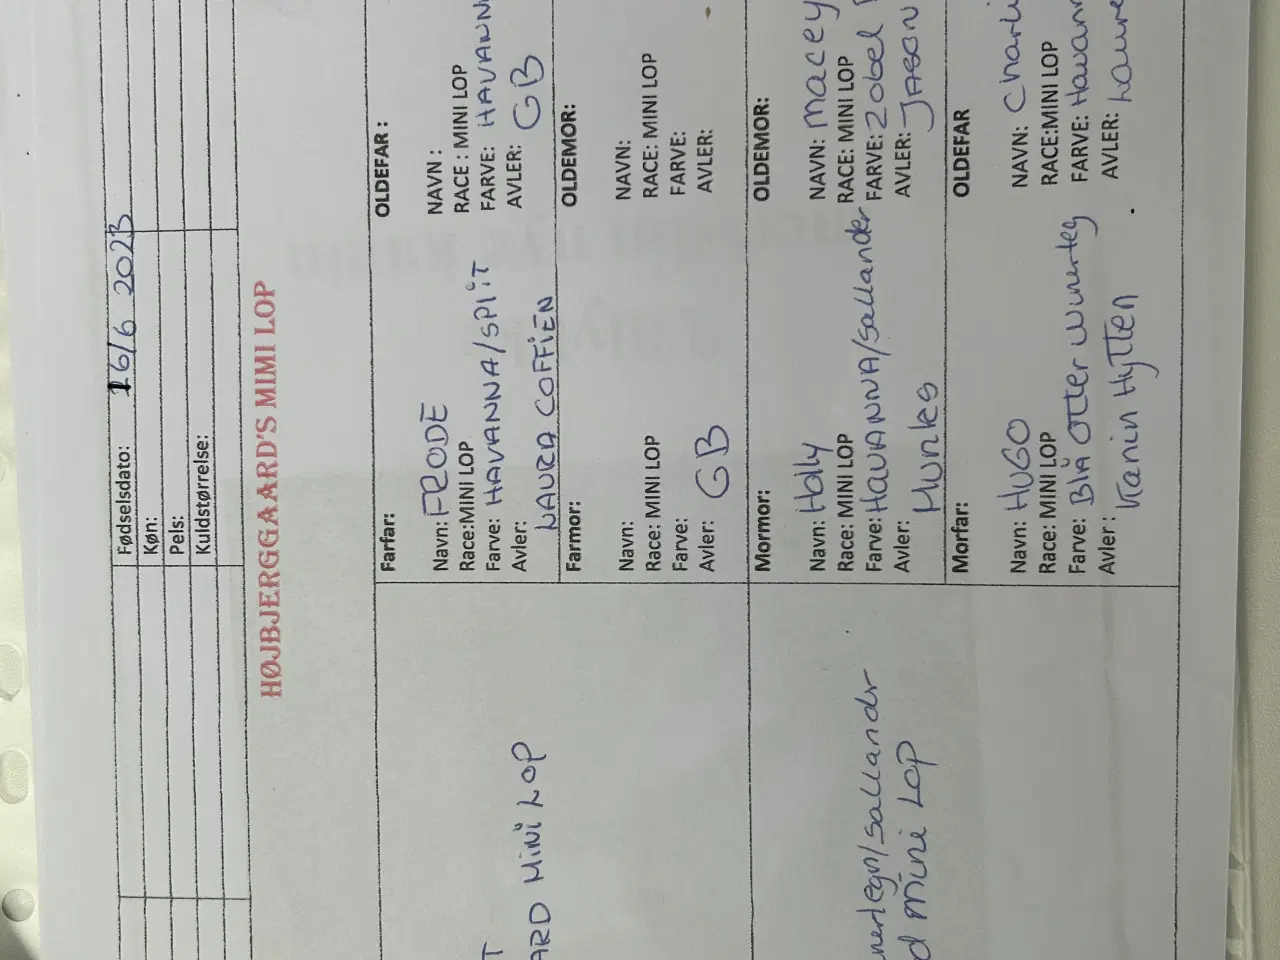 Fødselsdato: 16/6 2023
Køn:
Pels:
Kuldstørrelse:
HØJBJERGGAARD'S MIMI LOP
ARD MiNi LOP
nerlegn/sallandr
d mini LOP
Farfar:
Navn: FRODE
Race:MINI LOP
Farve: HAVANNA/SPLiT
Avler:
LAURA COFFiEN
Farmor:
Navn:
Race: MINI LOP
Farve:
Avler: GB
Mormor:
Navn: Holly
Race: MINI LOP
Farve: HAVANNA/sallander
Avler:
Munks
Morfar:
Navn: HUGO
Race: MINI LOP
Farve: Blå OTTer
Avler:
Kanin Hytten
OLDEFAR :
NAVN :
RACE : MINI LOP
FARVE: HAVANN
AVLER: GB
OLDEMOR:
NAVN:
RACE: MINI LOP
FARVE:
AVLER:
OLDEMOR:
NAVN: macey
RACE: MINI LOP
FARVE: Zobel
AVLER: JASON
OLDEFAR
NAVN: Charli
RACE:MINI LOP
FARVE: Havann
AVLER: Laure